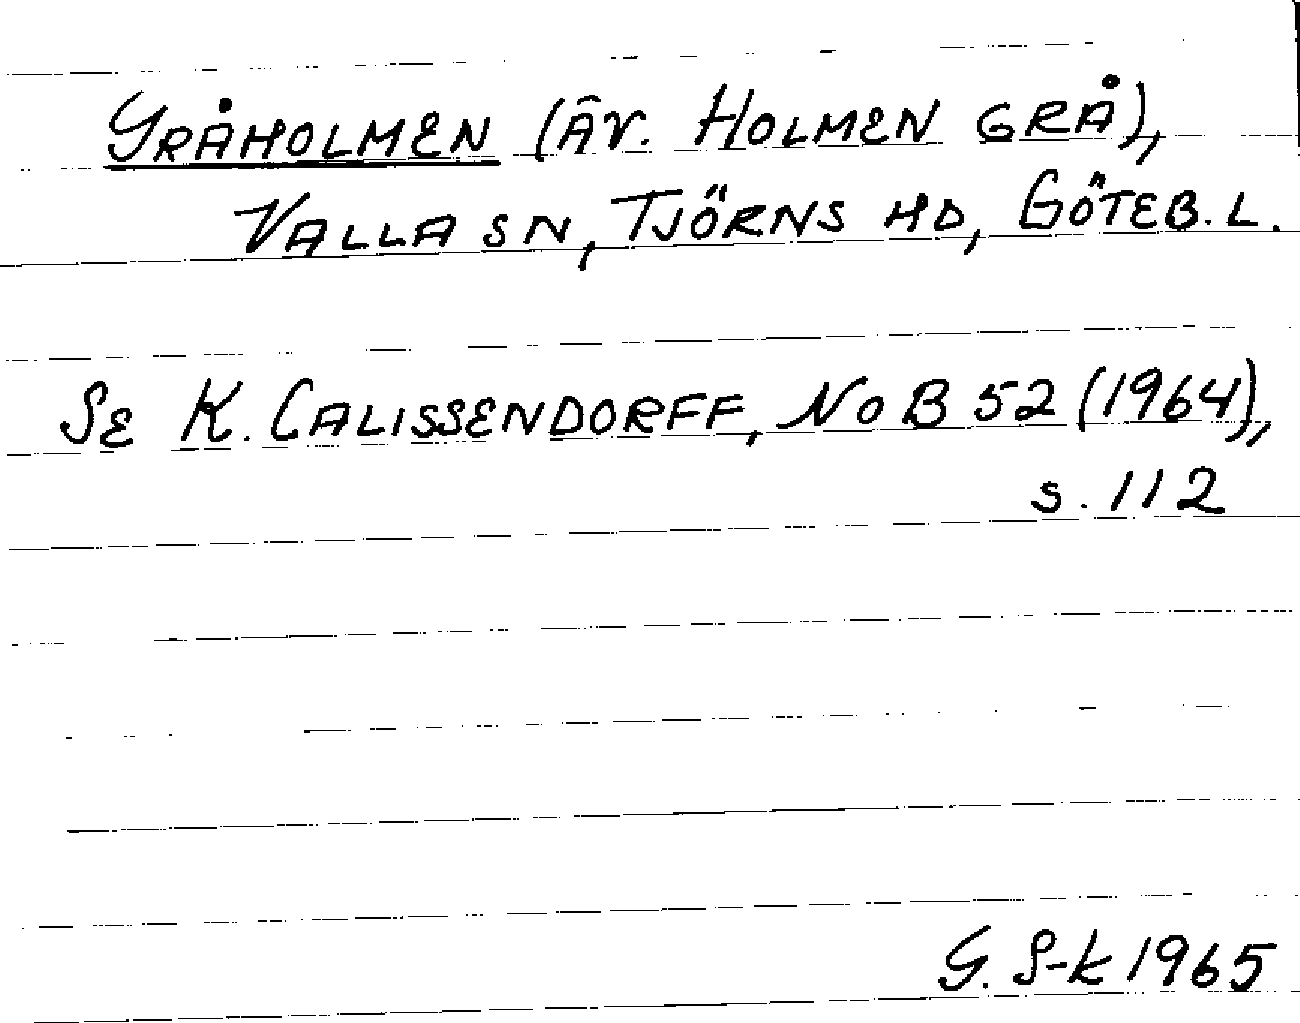 GRÅHOLMEN (ÄV. HOLMEN GRÅ),
VALLA SN, TJÖRNS HD, GÖTEB. L.
SE K. CALISSENDORFF, NoB 52 (1964),
s. 112
G. S-k 1965